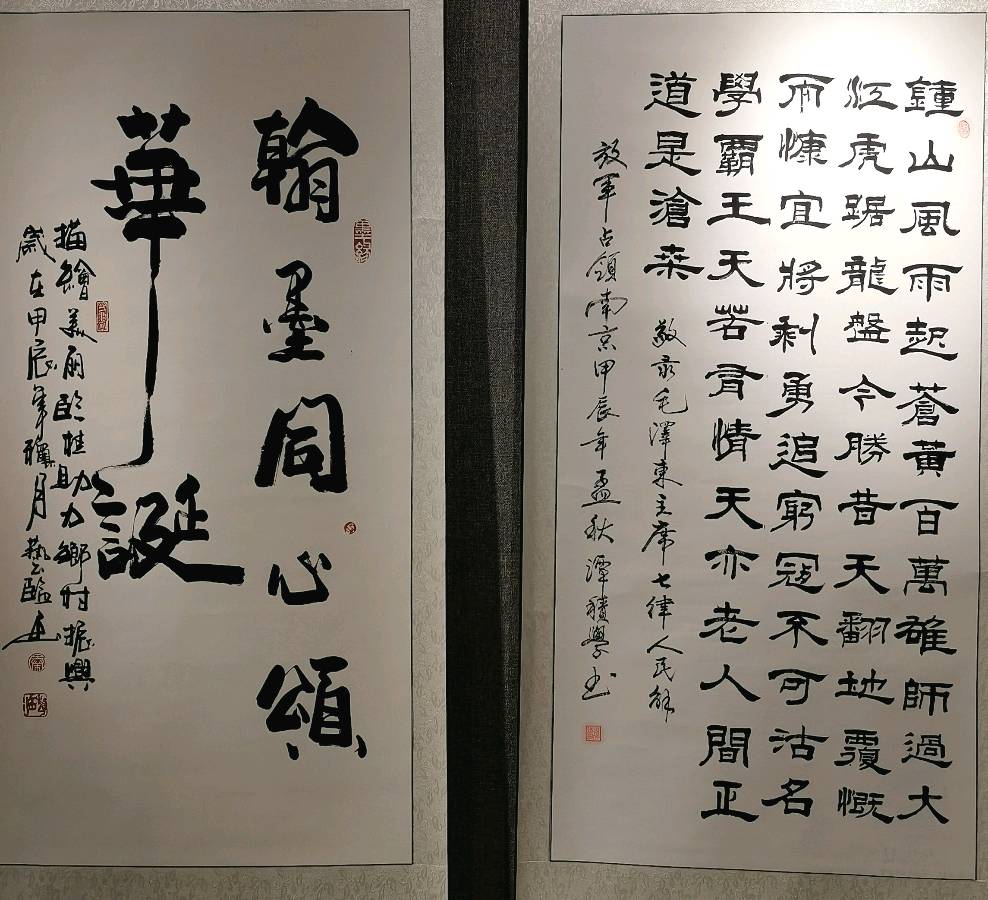 鍾山風雨起蒼黃百萬雄師過大
江虎踞龍盤今勝昔天翻地覆慨
而慷宜將剩勇追窮寇不可沽名
學霸王天若有情天亦老人間正
道是滄桑
敬录毛澤東主席七律人民解
放军占領南京甲辰年孟秋譚積學书
翰墨同心頌
華誕
描繪美丽临桂助力鄉村振興
歲在甲辰年穐月